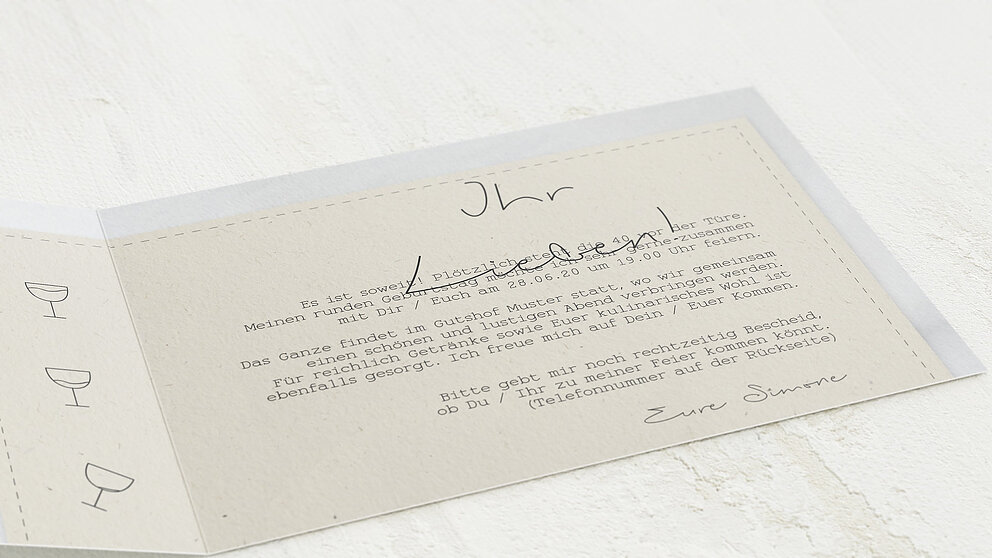 Ihr
Lieben!
Es ist soweit! Plötzlich steht die 40 vor der Türe.
Meinen runden Geburtstag möchte ich sehr gerne zusammen
mit Dir / Euch am 28.06.20 um 19.00 Uhr feiern.
Das Ganze findet im Gutshof Muster statt, wo wir gemeinsam
einen schönen und lustigen Abend verbringen werden.
Für reichlich Getränke sowie Euer kulinarisches Wohl ist
ebenfalls gesorgt. Ich freue mich auf Dein / Euer Kommen.
Bitte gebt mir noch rechtzeitig Bescheid,
ob Du / Ihr zu meiner Feier kommen könnt.
(Telefonnummer auf der Rückseite)
Eure Simone